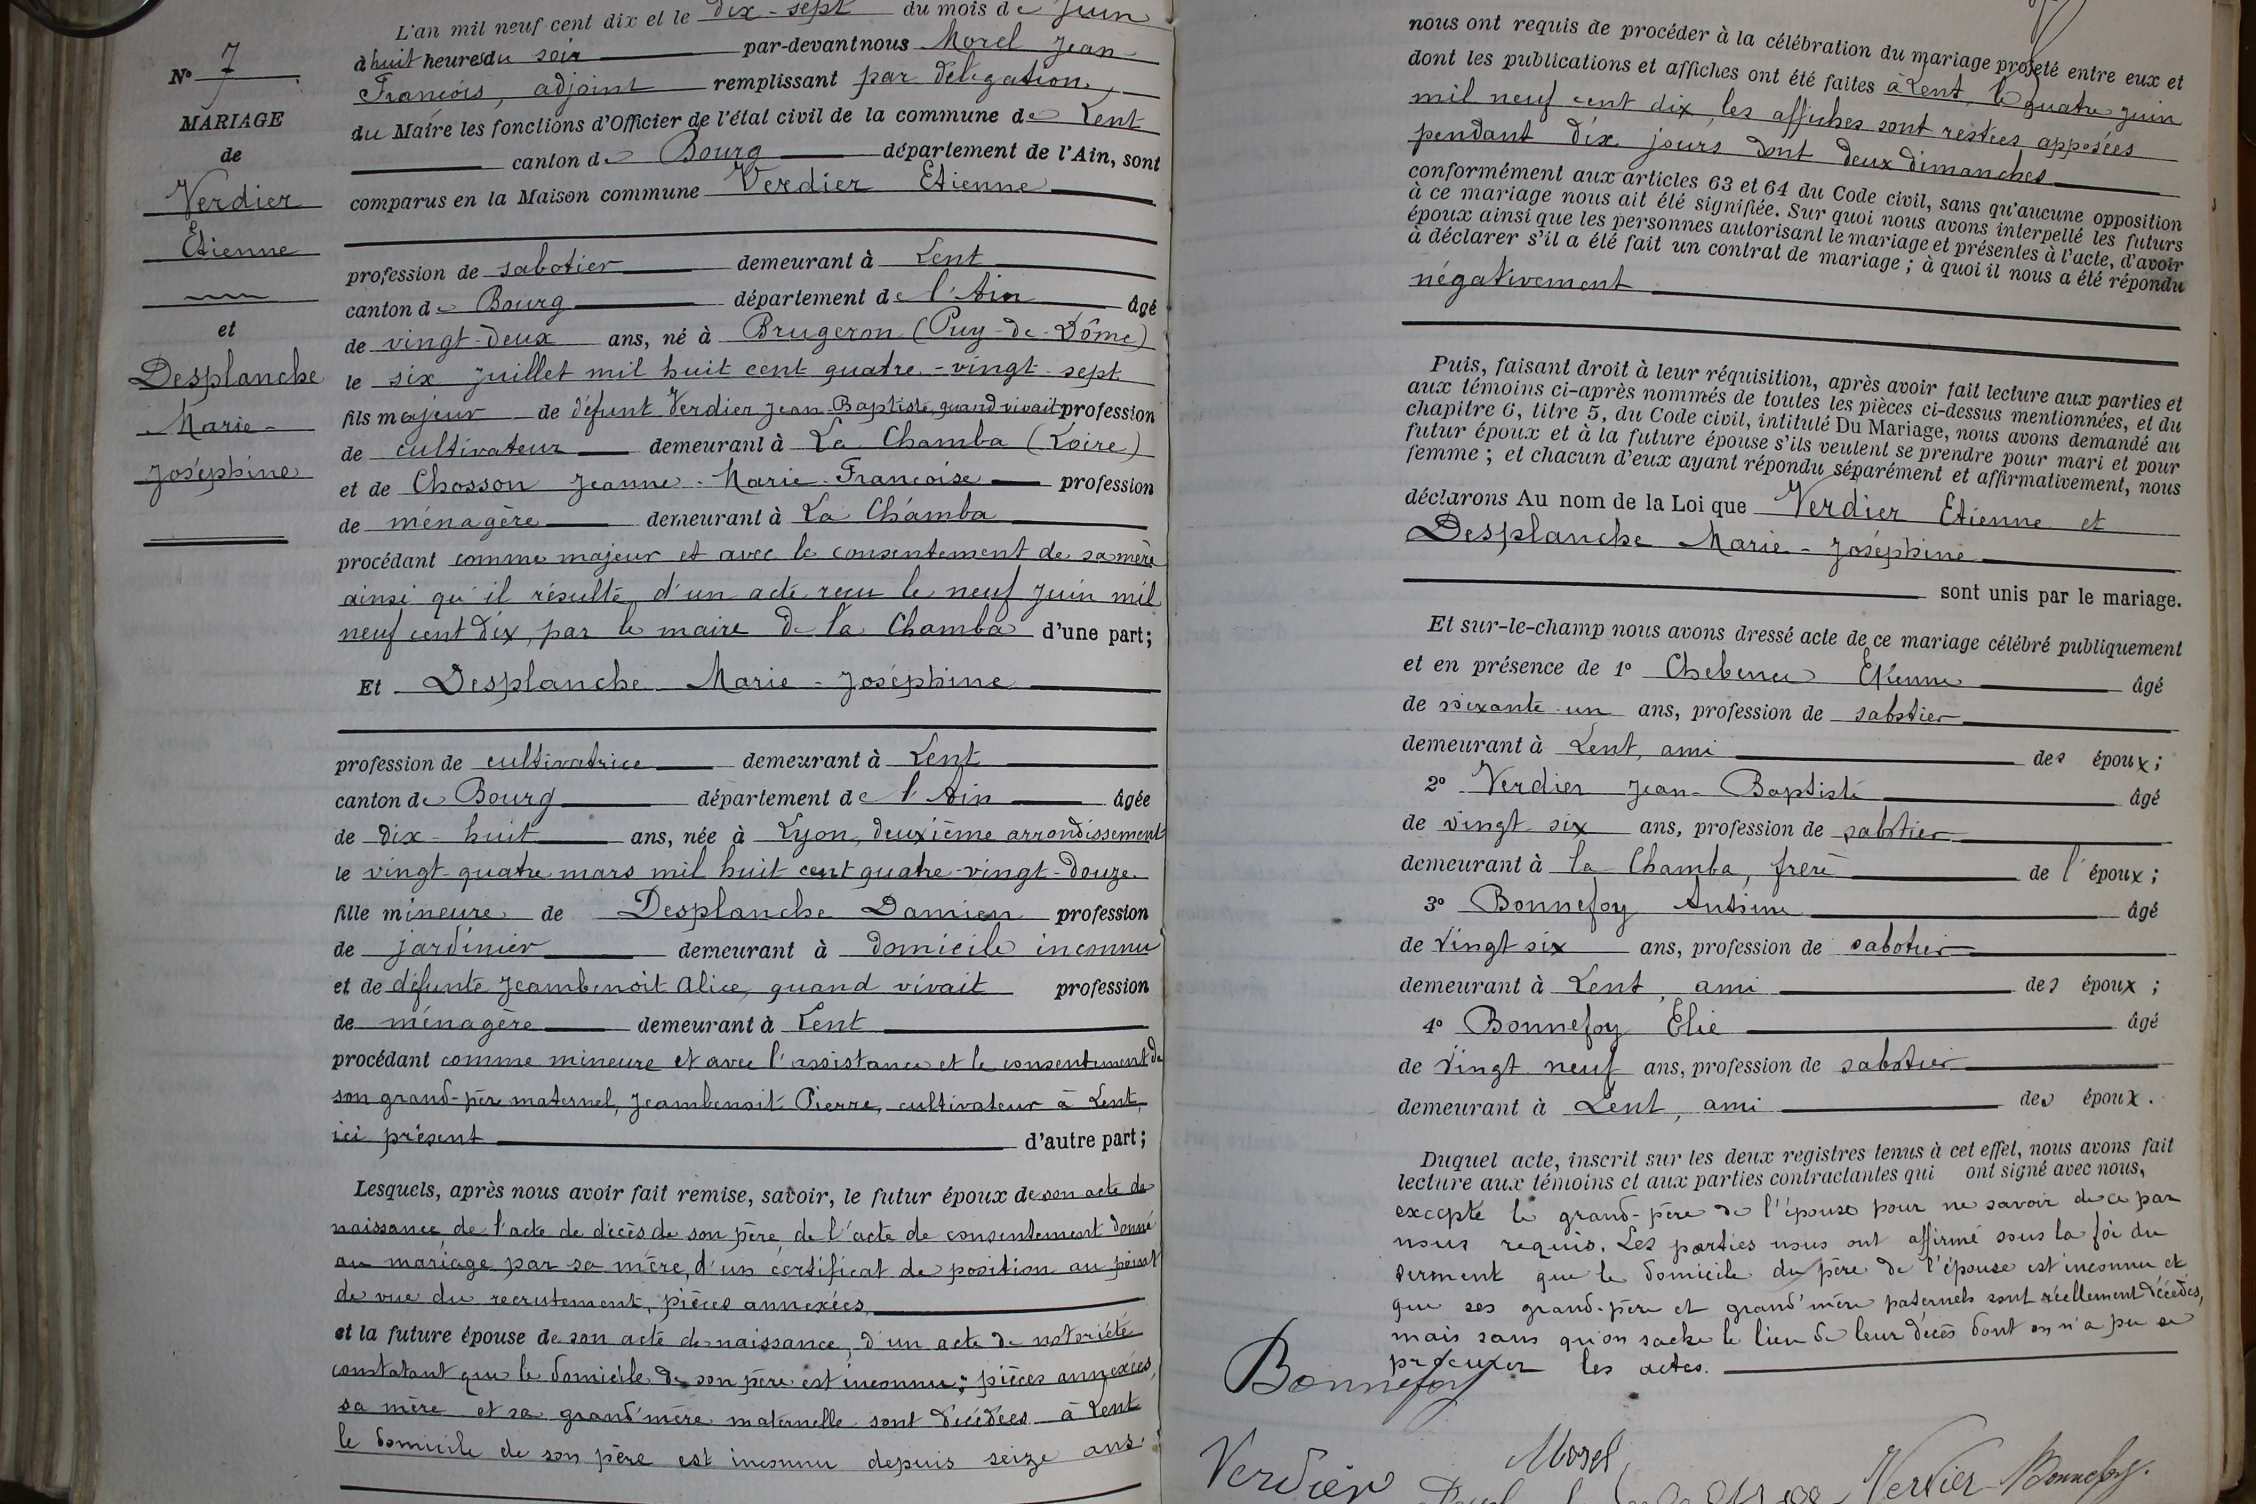 L'an mil neuf cent dix et le dix-sept du mois de Juin
à huit heures du soir par-devant nous Morel Jean-
François, adjoint remplissant par délégation
du Maire les fonctions d'Officier de l'état civil de la commune de Lent
canton de Bourg département de l'Ain, sont
comparus en la Maison commune Verdier Etienne
profession de sabotier demeurant à Lent
canton de Bourg département de l'Ain âgé
de vingt-deux ans, né à Brugeron (Puy-de-Dôme)
le six juillet mil huit cent quatre-vingt-sept
fils majeur de défunt Verdier Jean-Baptiste, quand vivait profession
de cultivateur demeurant à La Chamba (Loire)
et de Chosson Jeanne-Marie-Françoise profession
de ménagère demeurant à La Chamba
procédant comme majeur et avec le consentement de sa mère
ainsi qu'il résulte d'un acte reçu le neuf juin mil
neuf cent dix, par le maire de la Chamba d'une part;
Et Desplanche Marie-Joséphine
profession de cultivatrice demeurant à Lent
canton de Bourg département de l'Ain âgée
de dix-huit ans, née à Lyon, deuxième arrondissement
le vingt-quatre mars mil huit cent quatre-vingt-douze
fille mineure de Desplanche Damien profession
de jardinier demeurant à domicile inconnu
et de défunte Jeambenoit Alice, quand vivait profession
de ménagère demeurant à Lent
procédant comme mineure et avec l'assistance et le consentement de
son grand-père maternel, Jeambenoit Pierre, cultivateur à Lent,
ici présent d'autre part;
Lesquels, après nous avoir fait remise, savoir, le futur époux de son acte de
naissance de l'acte de décès de son père, de l'acte de consentement donné
au mariage par sa mère, d'un certificat de position au point
de vue du recrutement, pièces annexées,
et la future épouse de son acte de naissance, d'un acte de notoriété
constatant que le domicile de son père est inconnu; pièces annexées,
sa mère et sa grand'mère maternelle sont décédées à Lent
le domicile de son père est inconnu depuis seize ans
N° 7
MARIAGE
de
Verdier
Etienne
et
Desplanche
Marie-
Joséphine
nous ont requis de procéder à la célébration du mariage projeté entre eux et
dont les publications et affiches ont été faites à Lent, le quatre juin
mil neuf cent dix, les affiches sont restées apposées
pendant dix jours dont deux dimanches
conformément aux articles 63 et 64 du Code civil, sans qu'aucune opposition
à ce mariage nous ait été signifiée. Sur quoi nous avons interpellé les futurs
époux ainsi que les personnes autorisant le mariage et présentes à l'acte, d'avoir
à déclarer s'il a été fait un contrat de mariage; à quoi il nous a été répondu
négativement
Puis, faisant droit à leur réquisition, après avoir fait lecture aux parties et
aux témoins ci-après nommés de toutes les pièces ci-dessus mentionnées, et du
chapitre 6, titre 5, du Code civil, intitulé Du Mariage, nous avons demandé au
futur époux et à la future épouse s'ils veulent se prendre pour mari et pour
femme; et chacun d'eux ayant répondu séparément et affirmativement, nous
déclarons Au nom de la Loi que Verdier Etienne et
Desplanche Marie-Joséphine
sont unis par le mariage.
Et sur-le-champ nous avons dressé acte de ce mariage célébré publiquement
et en présence de 1° Etienne âgé
de soixante-un ans, profession de sabotier
demeurant à Lent, ami des époux;
2° Verdier Jean-Baptiste âgé
de vingt six ans, profession de sabotier
demeurant à la Chamba, frère de l'époux;
3° Bonnefoy Antoine âgé
de vingt six ans, profession de sabotier
demeurant à Lent, ami des époux;
4° Bonnefoy Élie âgé
de vingt neuf ans, profession de sabotier
demeurant à Lent, ami des époux.
Duquel acte, inscrit sur les deux registres tenus à cet effet, nous avons fait
lecture aux témoins et aux parties contractantes qui ont signé avec nous,
excepté le grand-père de l'épouse pour ne savoir de ce par
nous requis. Les parties nous ont affirmé sous la foi du
serment que le domicile du père de l'épouse est inconnu et
que ses grand-père et grand'mère paternels sont réellement décédés,
mais sans qu'on sache le lieu de leur décès dont on n'a pu se
procurer les actes.
Bonnefoy
Verdier Morel Verdier Bonnefoy